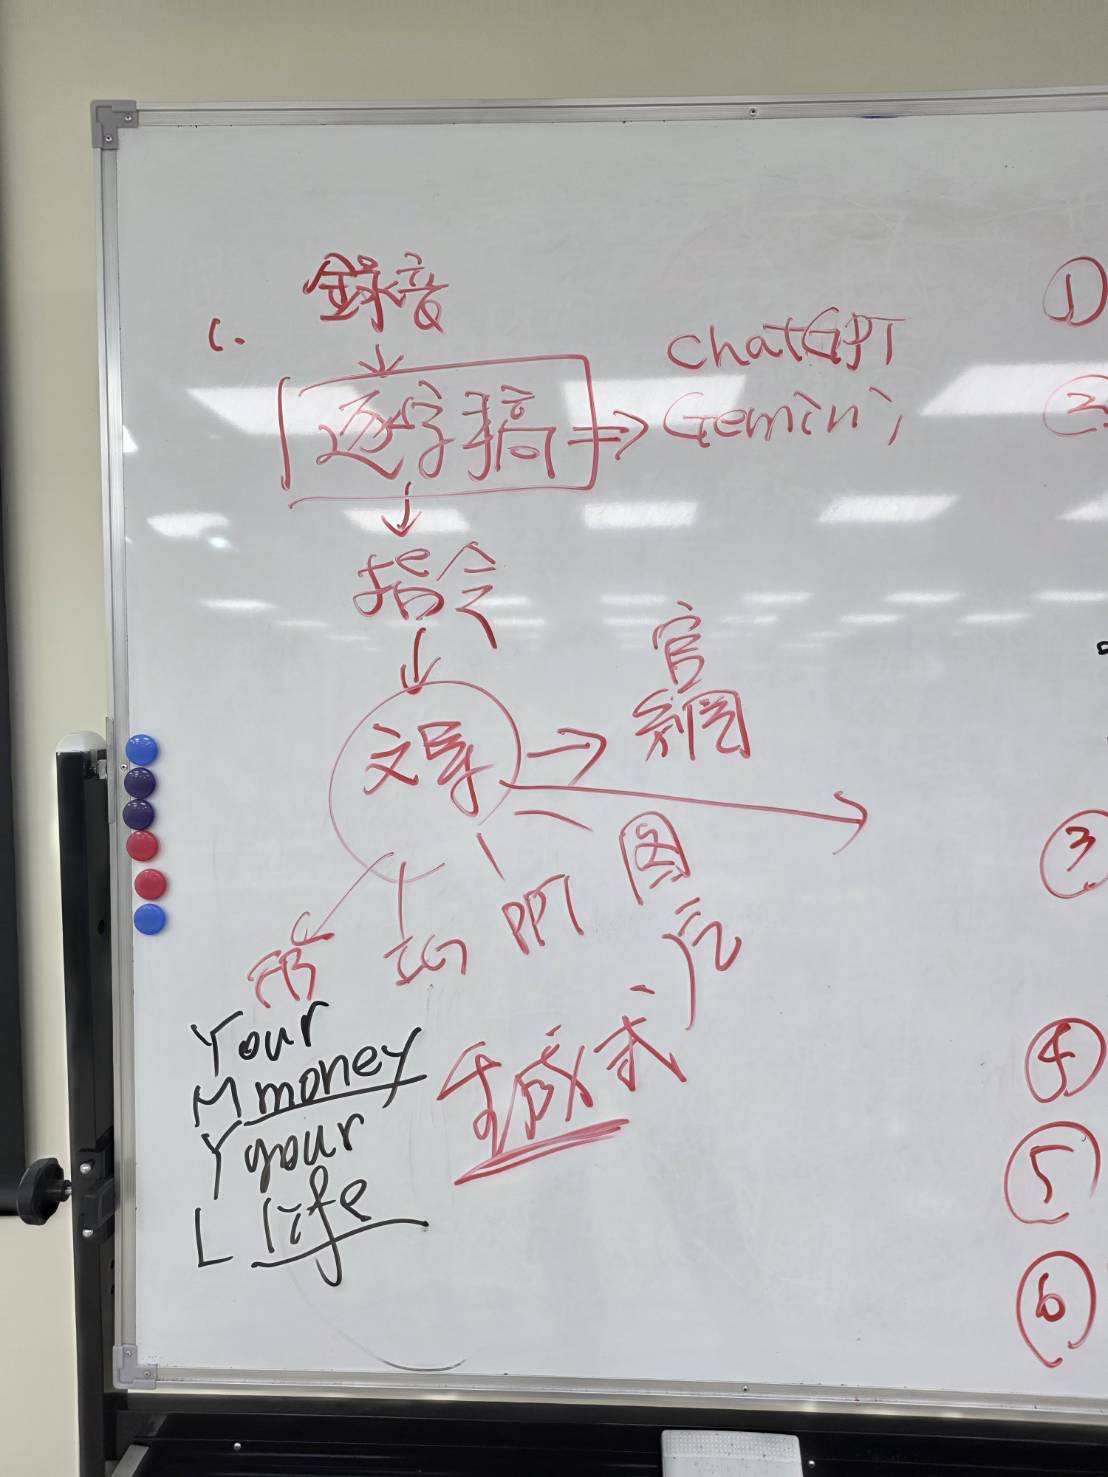 錄音
1.
逐字稿
ChatGPT
Gemini
指令
文字
官網
FB
IG
PPT
圖
Your
M money
Y your
L life
生成式
①
②
③
④
⑤
⑥